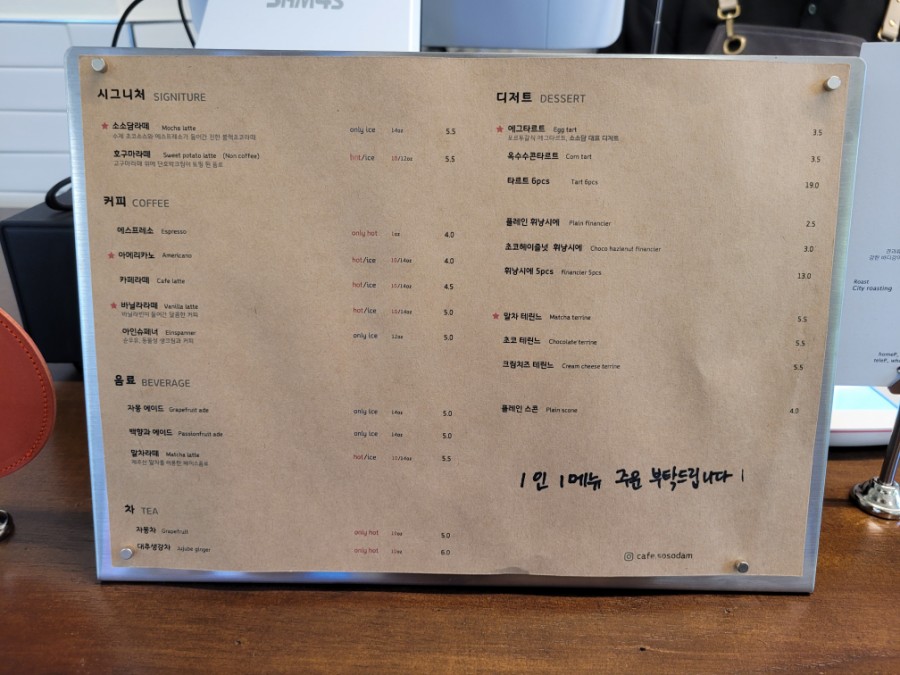 SAM4S
시그니처 SIGNITURE
★ 소소담라떼 Mocha latte only ice 14oz 5.5
호구마라떼 Sweet potato latte (Non coffee) hot/ice 10/12oz 5.5
커피 COFFEE
에스프레소 Espresso only hot 1oz 4.0
★ 아메리카노 Americano hot/ice 10/14oz 4.0
카페라떼 Cafe latte hot/ice 10/14oz 4.5
★ 바닐라라떼 Vanilla latte hot/ice 10/14oz 5.0
아인슈페너 Einspanner only ice 12oz 5.0
음료 BEVERAGE
자몽 에이드 Grapefruit ade only ice 14oz 5.0
백향과 에이드 Passionfruit ade only ice 14oz 5.0
말차라떼 Matcha latte hot/ice 10/14oz 5.5
차 TEA
자몽차 Grapefruit only hot 12oz 5.0
대추생강차 Jujube ginger only hot 12oz 6.0
디저트 DESSERT
★ 에그타르트 Egg tart 3.5
포르투갈식 에그타르트, 소소담 대표 디저트
옥수수콘타르트 Corn tart 3.5
타르트 6pcs Tart 6pcs 19.0
플레인 휘낭시에 Plain financier 2.5
초코헤이즐넛 휘낭시에 Choco hazlenut financier 3.0
휘낭시에 5pcs financier 5pcs 13.0
★ 말차 테린느 Matcha terrine 5.5
초코 테린느 Chocolate terrine 5.5
크림치즈 테린느 Cream cheese terrine 5.5
플레인 스콘 Plain scone 4.0
1인 1메뉴 주문 부탁드립니다!
cafe.sosodam
Roast
City roasting